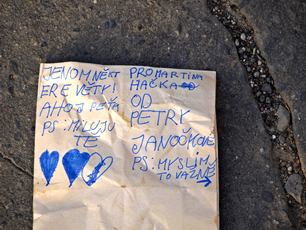 JENOM NĚKT
ERE VĚTY!
AHOJ PÉŤA
PS: MILUJU
TĚ
PRO MARTINA
HAČKA
OD
PETRY
JANOČKOVÉ
PS: MYSLÍM
TO VÁŽNĚ